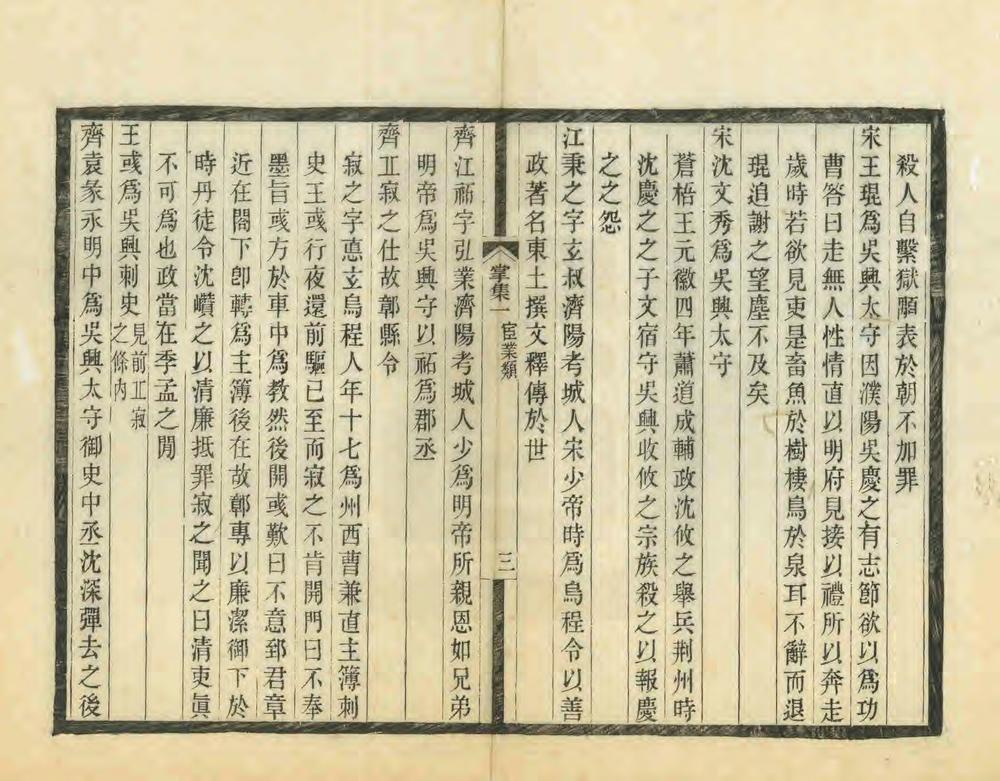 殺人自繫獄願表於朝不加罪
宋王琨爲吳興太守因濮陽吳慶之有志節欲以爲功
曹答曰走無人性情直以明府見接以禮所以奔走
歲時若欲見吏是畜魚於樹棲鳥於泉耳不辭而退
琨追謝之望塵不及矣
宋沈文秀爲吳興太守
蒼梧王元徽四年蕭道成輔政沈攸之舉兵荆州時
沈慶之之子文宿守吳興收攸之宗族殺之以報慶
之之怨
江秉之字玄叔濟陽考城人宋少帝時爲烏程令以善
政著名東土撰文釋傳於世
掌集一
宦業類
三
齊江祏字弘業濟陽考城人少爲明帝所親恩如兄弟
明帝爲吳興守以祏爲郡丞
齊丘寂之仕故鄣縣令
寂之字德玄烏程人年十七爲州西曹兼直主簿刺
史王彧行夜還前驅已至而寂之不肯開門曰不奉
墨旨彧方於車中爲教然後開彧歎曰不意郅君章
近在閤下卽轉爲主簿後在故鄣專以廉潔御下於
時丹徒令沈巑之以清廉抵罪寂之聞之曰清吏眞
不可爲也政當在季孟之閒
王彧爲吳興刺史見前丘寂
之條內
齊袁彖永明中爲吳興太守御史中丞沈深彈去之後